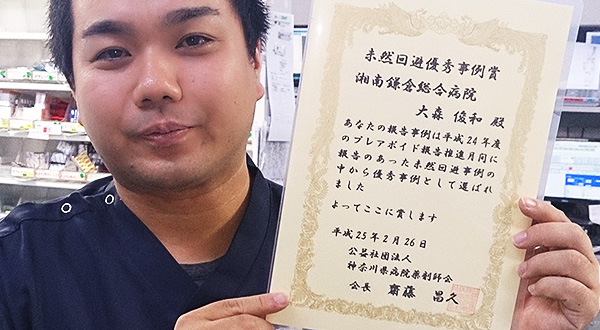 未然回避優秀事例賞
湘南鎌倉総合病院
大森 俊和 殿
あなたの報告事例は平成24年度
のプレアボイド報告推進月間に
報告のあった未然回避事例の
中から優秀事例として選ばれ
ました
よってここに賞します
平成25年2月26日
公益社団法人
神奈川県病院薬剤師会
会長 齋藤 昌久